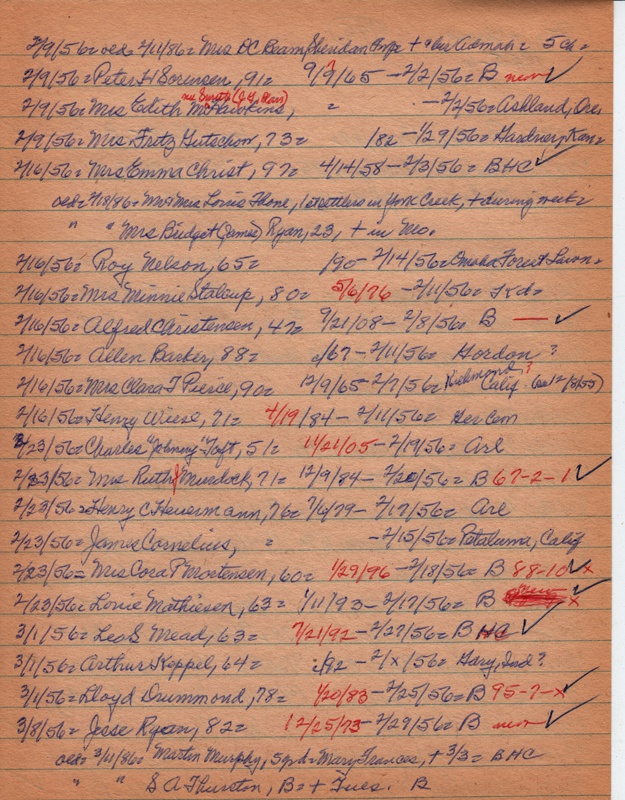 2/9/56= old 2/11/86= Mrs DC Beam, Sheridan Twp + 5 ch=
2/9/56= Peter H Sorensen, 91= 9/9/65 - 2/2/56= B new ✓
2/9/56= Mrs Edith McHawkins, = - 2/2/56= Ashland, Ore.
2/9/56= Mrs. Fritz Gutschow, 73= /82 - 1/29/56= Gardner, Kan=
2/16/56= Mrs Emma Christ, 97= 4/14/58 - 2/3/56= BHC ✓
old= 2/18/86= Mr & Mrs Louis Thone, 1st settlers in York Creek, + during week=
" " Mrs Bridget (James) Ryan, 23, + in Mo.
2/16/56= Roy Nelson, 65= /90 - 2/14/56= Omaha Forest Lawn=
2/16/56= Mrs Minnie Stalcup, 80= 5/6/76 - 2/11/56= Kd=
2/16/56= Alfred Christensen, 47= 9/21/08 - 2/8/56= B — ✓
2/16/56= Allen Barber, 88= c/67 - 2/11/56= Gordon?
2/16/56= Mrs Clara T Pierce, 90= 12/9/65 - 2/7/56= Richmond, Calif. ? (as 12/8/55)
2/16/56= Henry Wiese, 71= 4/19/84 - 2/11/56= Ger Cem
2/23/56= Charles "Johnny" Toft, 51= 11/21/05 - 2/19/56= Arl
2/23/56= Mrs Ruth J Murdock, 71= 12/9/84 - 2/20/56= B 67-2-1 ✓
2/23/56= Henry C Heuermann, 76= 7/6/79 - 2/17/56= Arl
2/23/56= James Cornelius, = - 2/15/56= Petaluma, Calif
2/23/56= Mrs Cora P Mortensen, 60= 1/29/96 - 2/18/56= B 88-10 ✓ x
2/23/56= Louie Mathiesen, 63= 1/11/93 - 2/17/56= B ✓ x
3/1/56= Leo S Mead, 63= 7/21/92 - 2/27/56= B HC ✓
3/1/56= Arthur Keppel, 64= c/92 - 2/x/56= Gary, Ind?
3/1/56= Lloyd Drummond, 78= 1/20/83 - 2/25/56= B 95-7-x ✓
3/8/56= Jesse Ryan, 82= 12/25/73 - 2/29/56= B new ✓
old= 3/11/86= Martin Murphy, 5 gd= Mary Frances, + 3/3= BHC
" " S A Thurston, B= + Tues. B